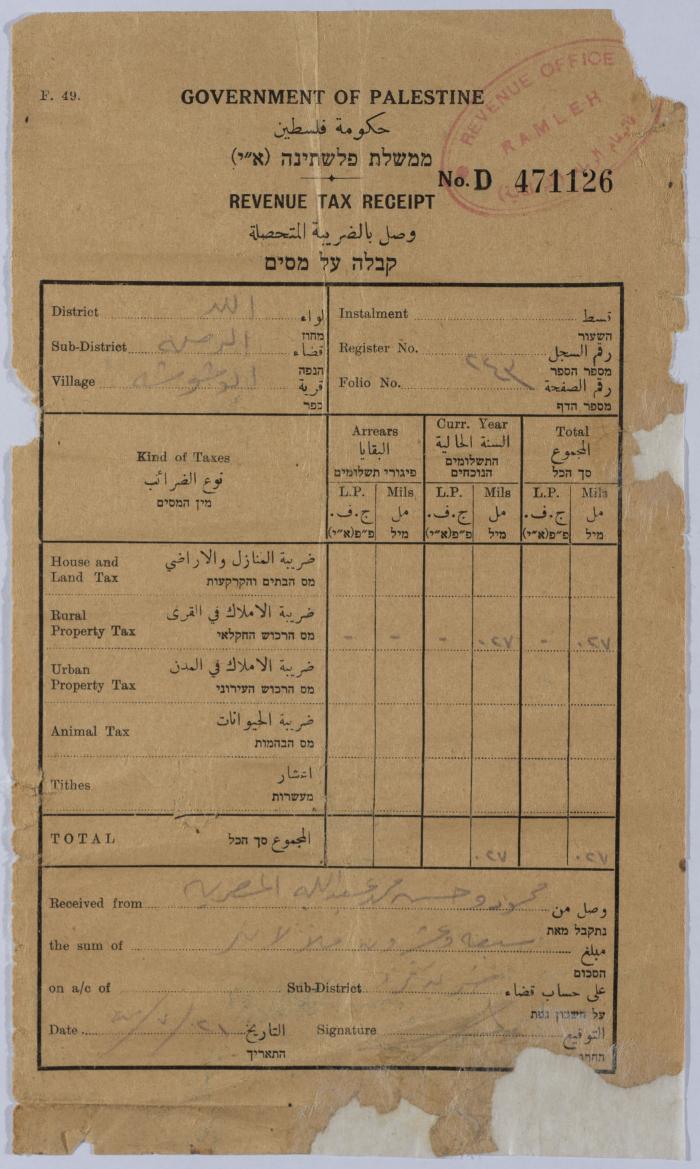 F. 49.
GOVERNMENT OF PALESTINE
حكومة فلسطين
ממשלת פלשתינה (א״י)
REVENUE OFFICE
RAMLEH
No. D 471126
REVENUE TAX RECEIPT
وصل بالضريبة المتحصلة
קבלה על מסים
District اللد لواء
מחוז
Sub-District الرملة قضاء
הנפה
Village ابو شوشه قرية
כפר
Instalment قسط
השעור
Register No. رقم السجل
מספר הספר
Folio No. ٢٤٣ رقم الصفحة
מספר הדף
Kind of Taxes
نوع الضرائب
מין המסים
Arrears
البقايا
פיגורי תשלומים
Curr. Year
السنة الحالية
התשלומים
הנוכחים
Total
المجموع
סך הכל
L.P. Mils L.P. Mils L.P. Mils
ج.ف. مل ج.ف. مل ج.ف. مل
פ״פ(א״י) מיל פ״פ(א״י) מיל פ״פ(א״י) מיל
House and
Land Tax
ضريبة المنازل والاراضي
מס הבתים והקרקעות
Rural
Property Tax
ضريبة الاملاك في القرى
מס הרכוש החקלאי
- - - ٠٢٧ - ٠٢٧
Urban
Property Tax
ضريبة الاملاك في المدن
מס הרכוש העירוני
Animal Tax
ضريبة الحيوانات
מס הבהמות
Tithes
اعشار
מעשרות
TOTAL المجموع סך הכל ٠٢٧ ٠٢٧
Received from محمود وحسن محمد عبدالله وصل من
נתקבל מאת
the sum of سبعة وعشرون ملا لا غير مبلغ
הסכום
on a/c of Sub-District على حساب قضاء
על חשבון נפת
Date التاريخ
התאריך
Signature التوقيع